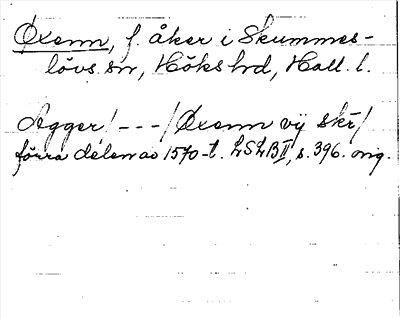 Öxenn, f. åker i Skummes-
lövs sn, Höks hd, Hall. l.
Agger/---/Öxenn vÿ skr/
förra delen av 1570-t. LSLB II, s. 396. orig.